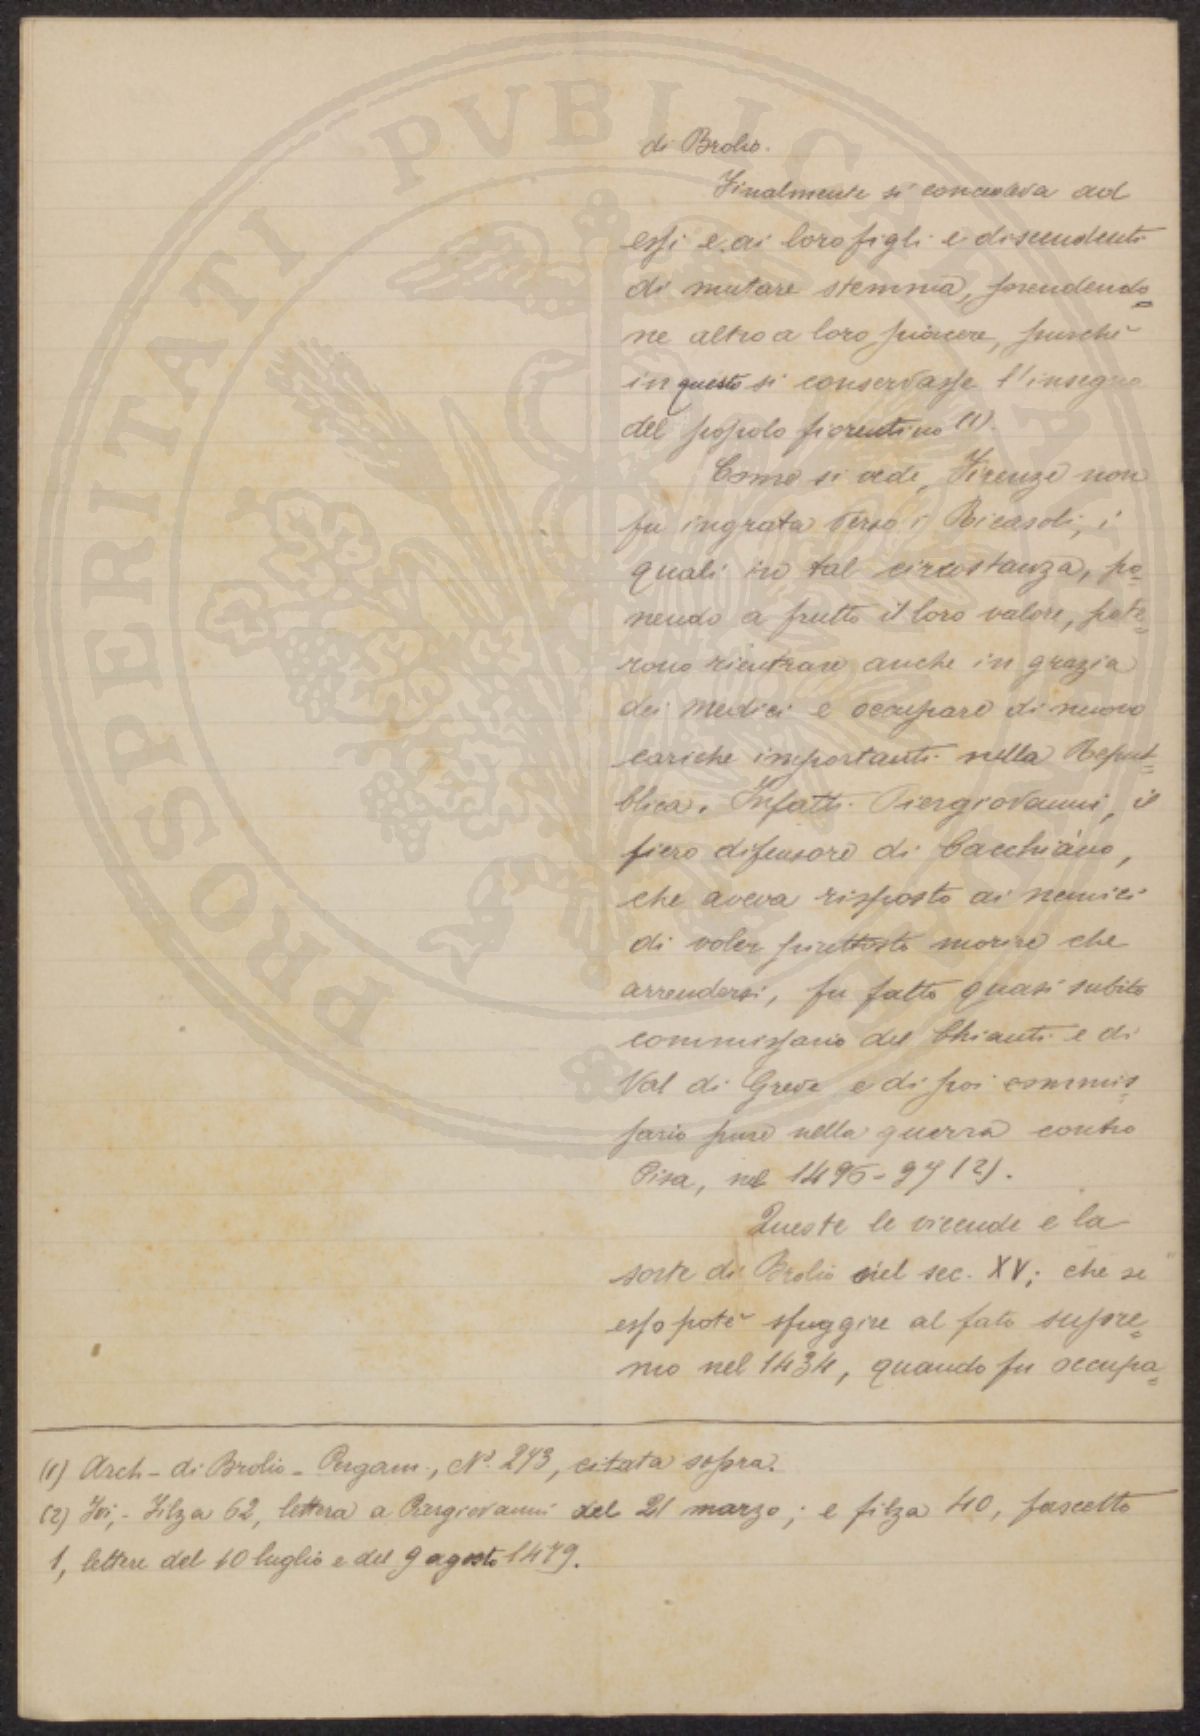 di Brolio.
Finalmente si concedeva ad
essi e ai loro figli e discendenti
di mutare stemma, prendendo=
ne altro a loro piacere, purchè
in questo si conservasse l'insegna
del popolo fiorentino (1).
Come si vede, Firenze non
fu ingrata verso i Ricasoli, i
quali in tal circostanza, po=
nendo a frutto il loro valore, pote=
rono rientrare anche in grazia
dei Medici e occupare di nuovo
cariche importanti nella Repub=
blica. Infatti Piergiovanni, il
fiero difensore di Cacchiano,
che aveva risposto ai nemici
di voler piuttosto morire che
arrendersi, fu fatto quasi subito
commissario del Chianti e di
Val di Greve e di poi commis=
sario pure nella guerra contro
Pisa, nel 1495-97 (2).
Queste le vicende e la
sorte di Brolio nel sec. XV; che se
esso potè sfuggire al fato supre=
mo nel 1434, quando fu occupa=
(1) Arch - di Brolio - Pergam., N.° 273, citata sopra.
(2) Ivi, - Filza 62, lettera a Piergiovanni del 21 marzo; e filza 40, fascetto
1, lettere del 10 luglio e del 9 agosto 1479.
PROSPERITATI PVBLICAE AVGENDAE